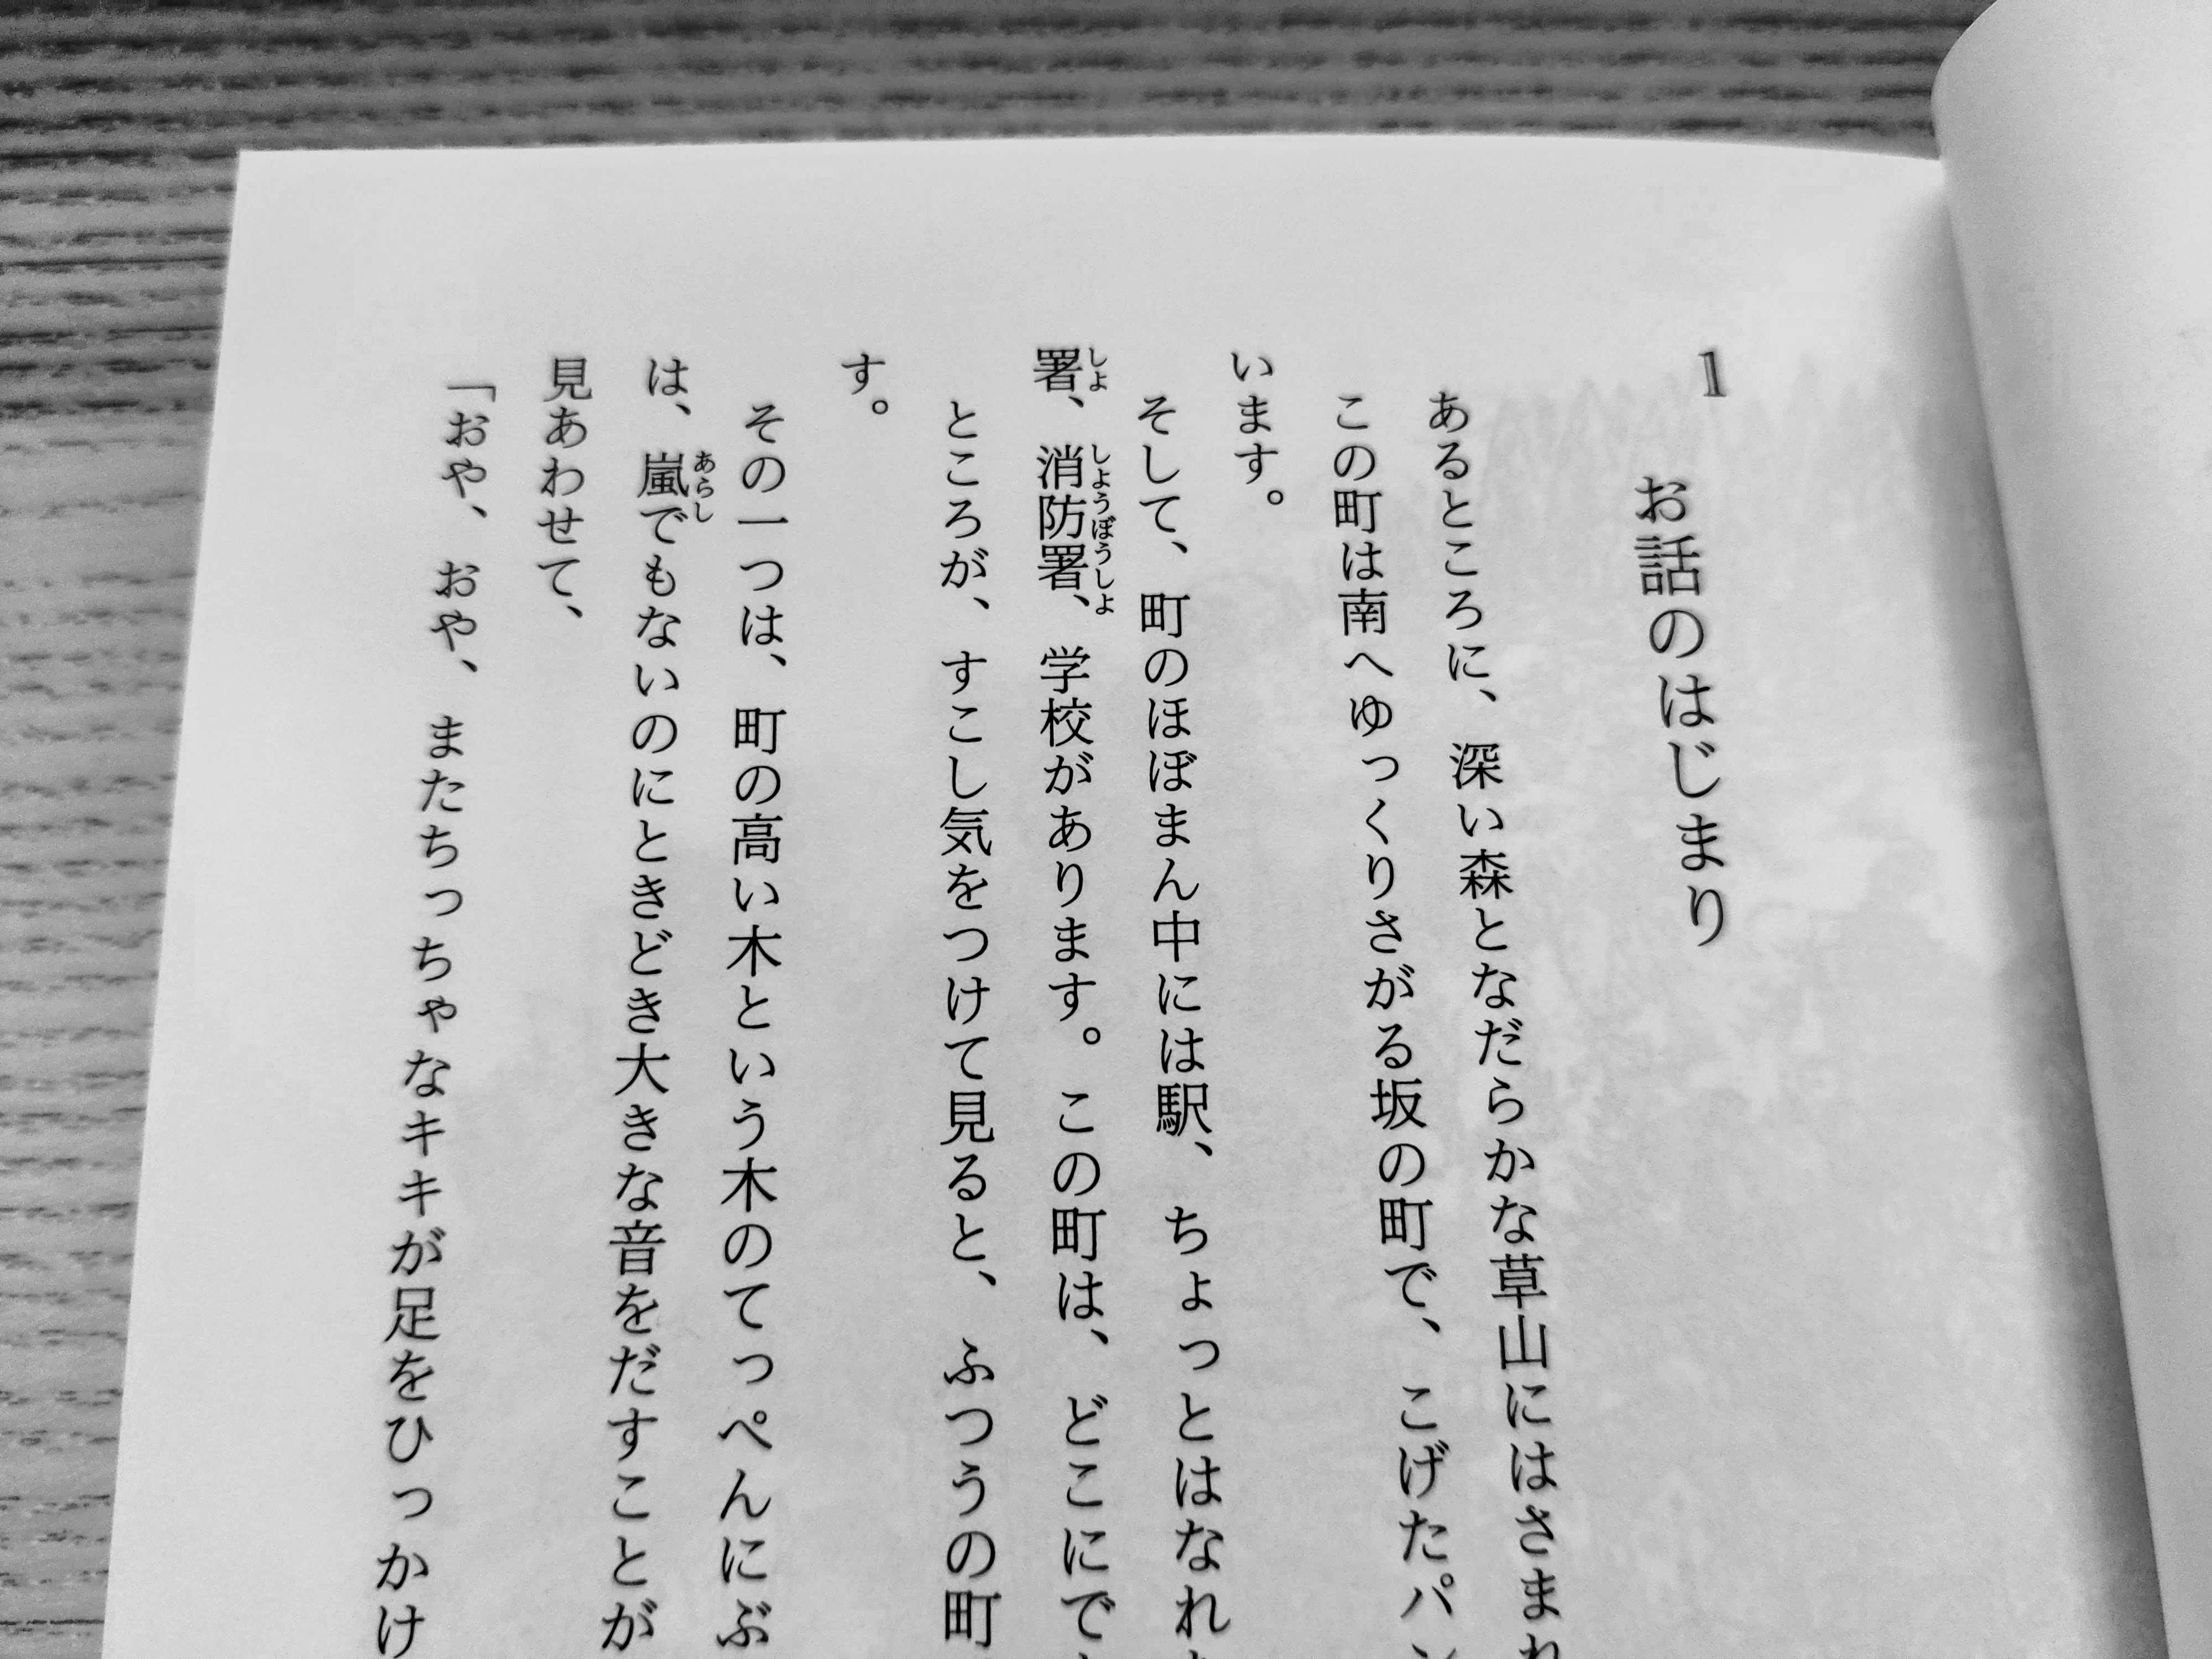 1 お話のはじまり
あるところに、深い森となだらかな草山にはさまれ
この町は南へゆっくりさがる坂の町で、こげたパン
います。
そして、町のほぼまん中には駅、ちょっとはなれ
署、消防署、学校があります。この町は、どこにで
ところが、すこし気をつけて見ると、ふつうの町
す。
その一つは、町の高い木という木のてっぺんにぶ
は、嵐でもないのにときどき大きな音をだすことが
見あわせて、
「おや、おや、またちっちゃなキキが足をひっかけ
しょ
しょうぼうしょ
あらし